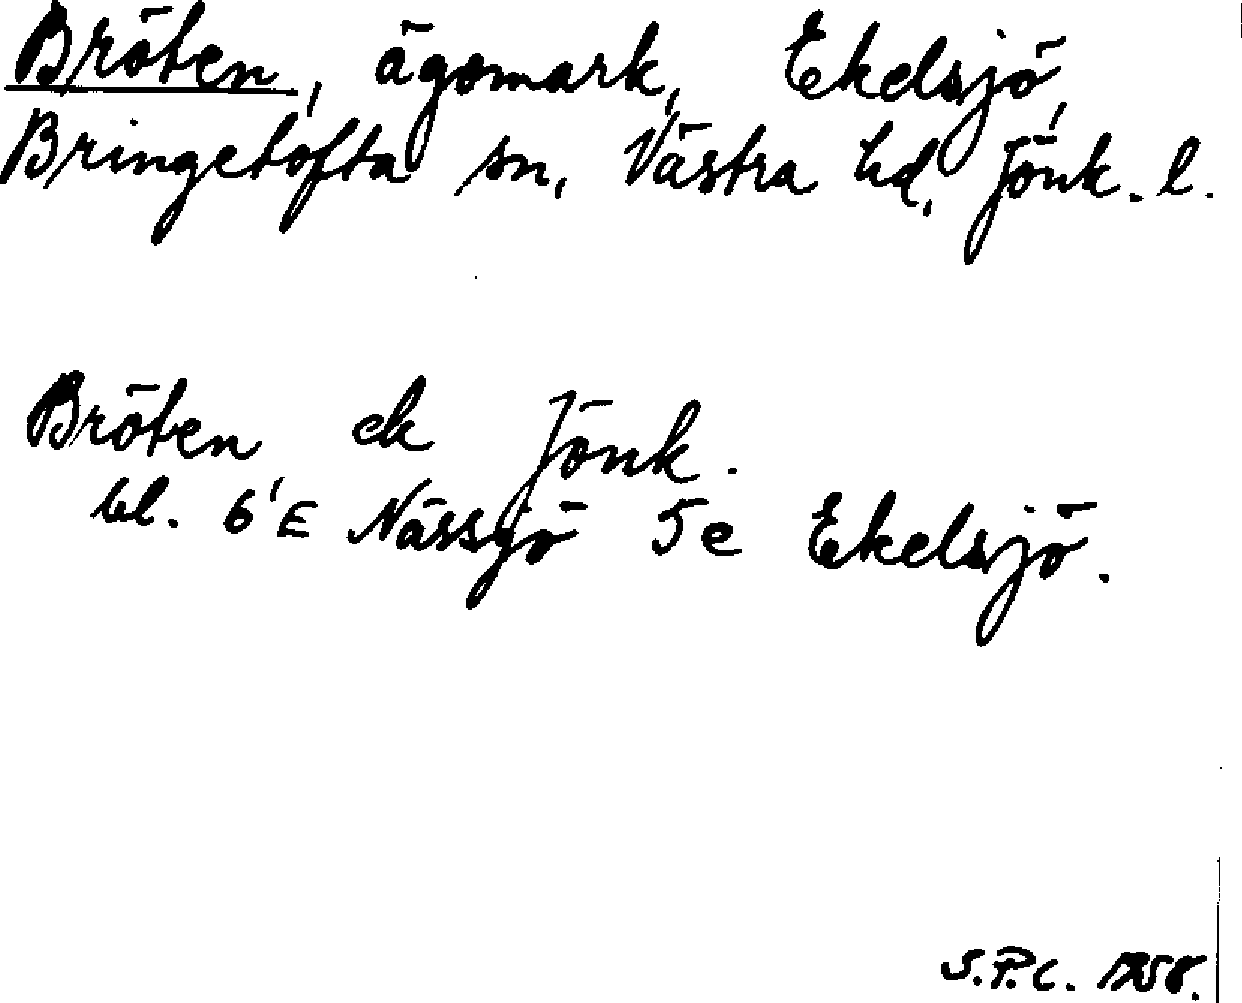 Bröten, ägomark, Ekelsjö,
Bringetofta sn, Västra hd, Jönk. l.
Bröten ek Jönk.
bl. 6'E Nässjö 5e Ekelsjö.
S.P.C. 1958.